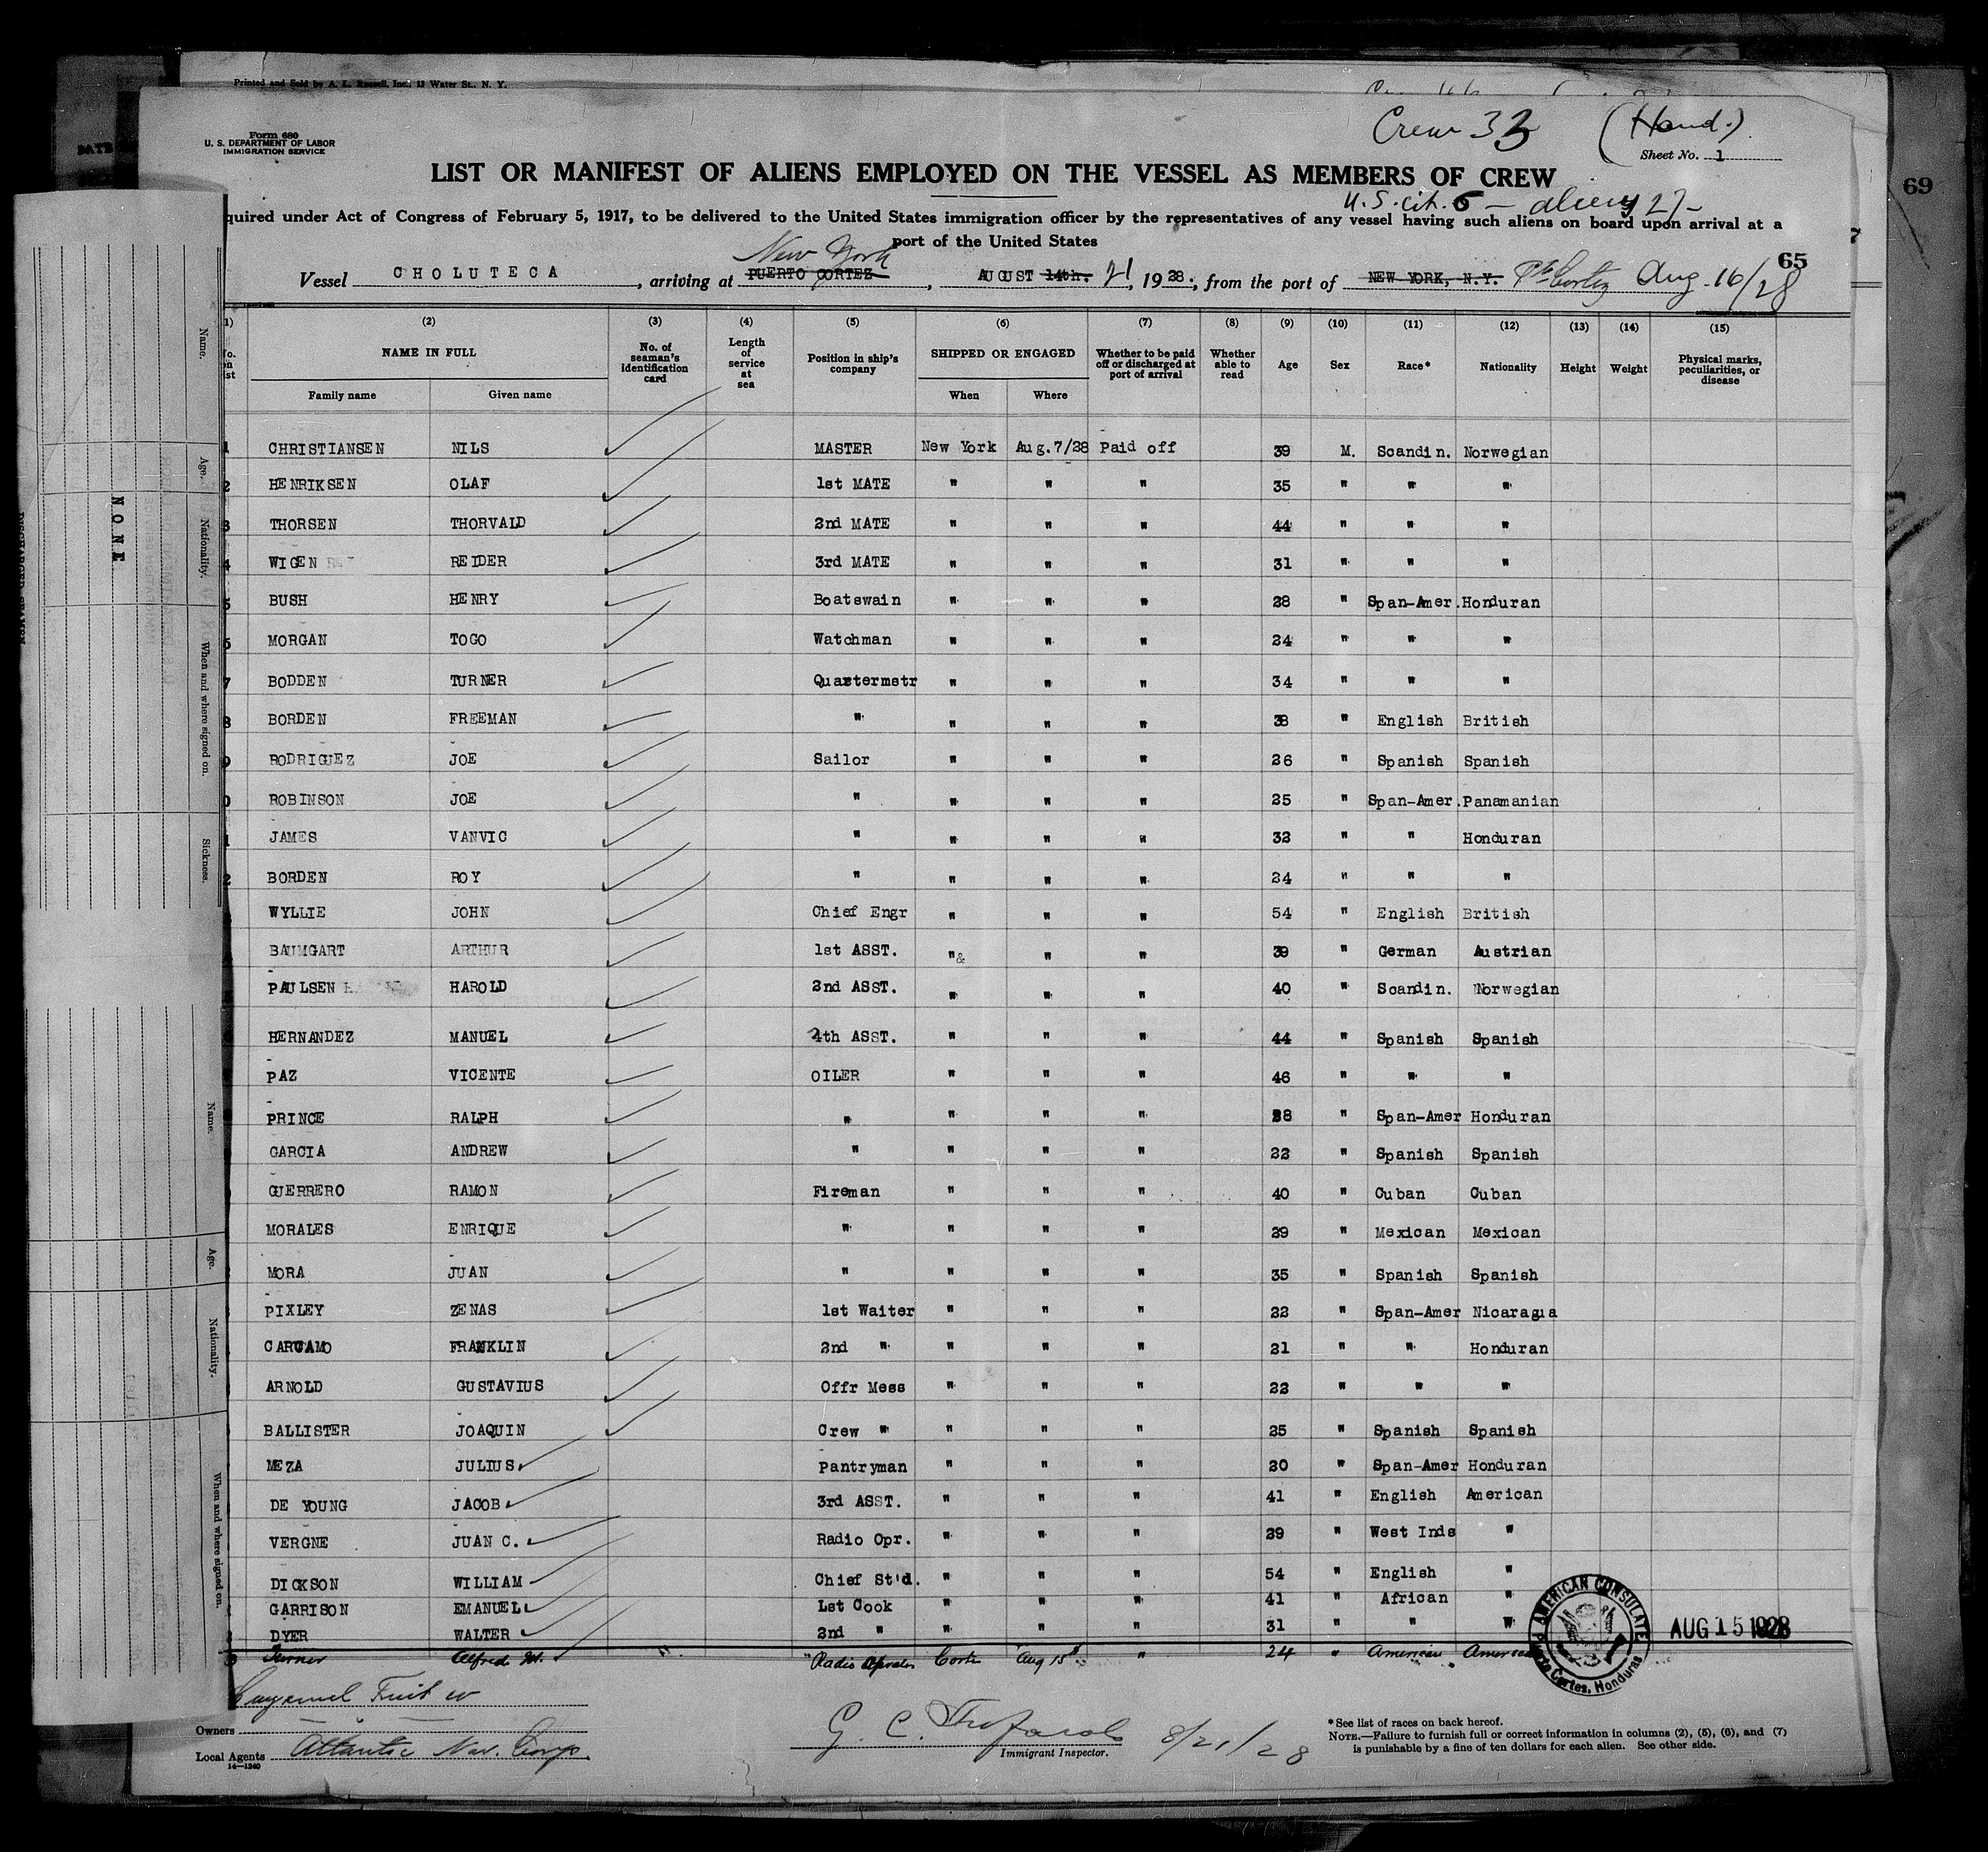 Printed and Sold by A. L. Russell, Inc., 13 Water St., N. Y.
DATE
Form 680
U. S. DEPARTMENT OF LABOR
IMMIGRATION SERVICE
Crew 33 (Hand.)
Sheet No. 1
69
LIST OR MANIFEST OF ALIENS EMPLOYED ON THE VESSEL AS MEMBERS OF CREW
U.S. cit. 6 — aliens 27 —
quired under Act of Congress of February 5, 1917, to be delivered to the United States immigration officer by the representatives of any vessel having such aliens on board upon arrival at a
port of the United States
65
New York
Vessel CHOLUTECA, arriving at PUERTO CORTEZ, AUGUST 14th. 21, 1928, from the port of NEW YORK, N.Y. Pto Cortez Aug. 16/28
(2) (3) (4) (5) (6) (7) (8) (9) (10) (11) (12) (13) (14) (15)
NAME IN FULL
Family name Given name
No. of seaman's identification card
Length of service at sea
Position in ship's company
SHIPPED OR ENGAGED
When Where
Whether to be paid off or discharged at port of arrival
Whether able to read
Age Sex Race* Nationality Height Weight
Physical marks, peculiarities, or disease
1 CHRISTIANSEN NILS MASTER New York Aug.7/28 Paid off 39 M. Scandin. Norwegian
2 HENRIKSEN OLAF 1st MATE " " " 35 " " "
3 THORSEN THORVALD 2nd MATE " " " 44 " " "
4 WIGEN REIDER 3rd MATE " " " 31 " " "
5 BUSH HENRY Boatswain " " " 28 " Span-Amer. Honduran
6 MORGAN TOGO Watchman " " " 24 " " "
7 BODDEN TURNER Quartermstr " " " 34 " " "
8 BORDEN FREEMAN " " " " 38 " English British
9 RODRIGUEZ JOE Sailor " " " 26 " Spanish Spanish
0 ROBINSON JOE " " " " 25 " Span-Amer. Panamanian
1 JAMES VANVIC " " " " 32 " " Honduran
2 BORDEN ROY " " " " 24 " " "
WYLLIE JOHN Chief Engr " " " 54 " English British
BAUMGART ARTHUR 1st ASST. "& " " 39 " German Austrian
PAULSEN HAROLD 2nd ASST. " " " 40 " Scandin. Norwegian
HERNANDEZ MANUEL 4th ASST. " " " 44 " Spanish Spanish
PAZ VICENTE OILER " " " 46 " " "
PRINCE RALPH " " " " 28 " Span-Amer Honduran
GARCIA ANDREW " " " " 22 " Spanish Spanish
GUERRERO RAMON Fireman " " " 40 " Cuban Cuban
MORALES ENRIQUE " " " " 29 " Mexican Mexican
MORA JUAN " " " " 35 " Spanish Spanish
PIXLEY ZENAS 1st Waiter " " " 22 " Span-Amer Nicaragua
CARCAMO FRANKLIN 2nd " " " " 21 " " Honduran
ARNOLD GUSTAVIUS Offr Mess " " " 22 " " "
BALLISTER JOAQUIN Crew " " " " 25 " Spanish Spanish
MEZA JULIUS Pantryman " " " 20 " Span-Amer Honduran
DE YOUNG JACOB 3rd ASST. " " " 41 " English American
VERGNE JUAN C. Radio Opr. " " " 29 " West Inds "
DICKSON WILLIAM Chief St'd. " " " 54 " English "
GARRISON EMANUEL Lst Cook " " " 41 " African "
DYER WALTER 2nd " " " " 31 " " "
Turner Alfred M. Radio Operator Cortes Aug 15 " 24 " American American
AMERICAN CONSULATE
Puerto Cortes, Honduras
AUG 15 1928
Cuyamel Fruit Co
Owners
Local Agents Atlantic Nav. Corp.
14—1240
G. C.
Immigrant Inspector.
8/21/28
*See list of races on back hereof.
NOTE.—Failure to furnish full or correct information in columns (2), (5), (6), and (7)
is punishable by a fine of ten dollars for each alien. See other side.
Name.
Age.
Nationality.
When and where signed on.
Sickness.
NONE
Name.
Age.
Nationality.
When and where signed on.